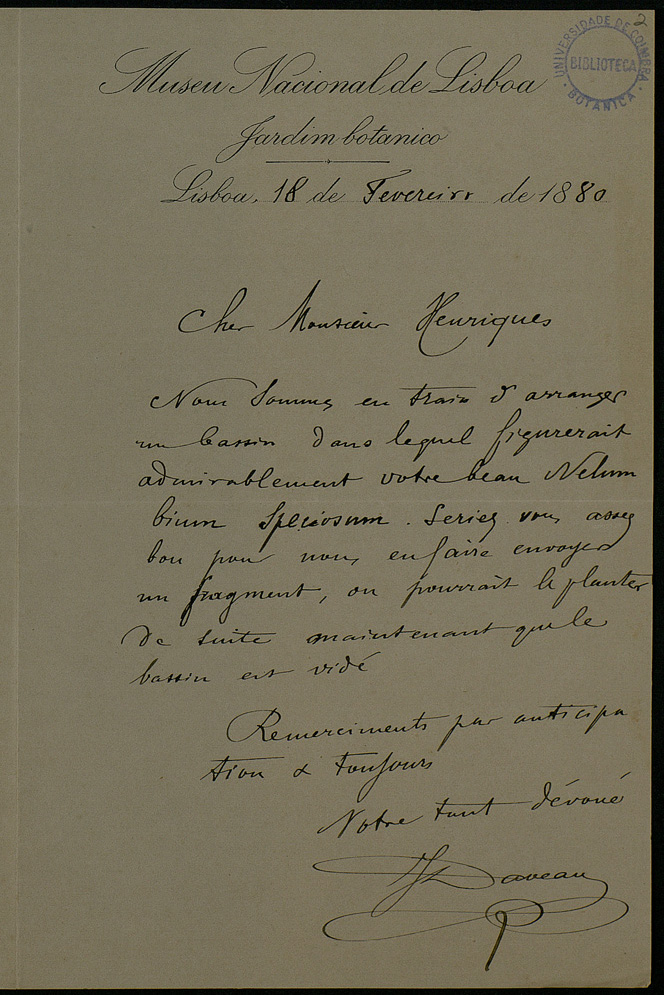 2
UNIVERSIDADE DE COIMBRA
BIBLIOTECA
BOTANICA
Museu Nacional de Lisboa
Jardim botanico
Lisboa, 18 de Fevereiro de 1880
Cher Monsieur Henriques
Nous sommes en train d'arranger
un bassin dans lequel figurerait
admirablement votre beau Nelum
bium Speciosum. Seriez vous assez
bon pour nous en faire envoyer
un fragment, on pourrait le planter
de suite maintenant que le
bassin est vidé
Remerciments par anticipa
tion & toujours
Votre tout dévoué
J Daveau